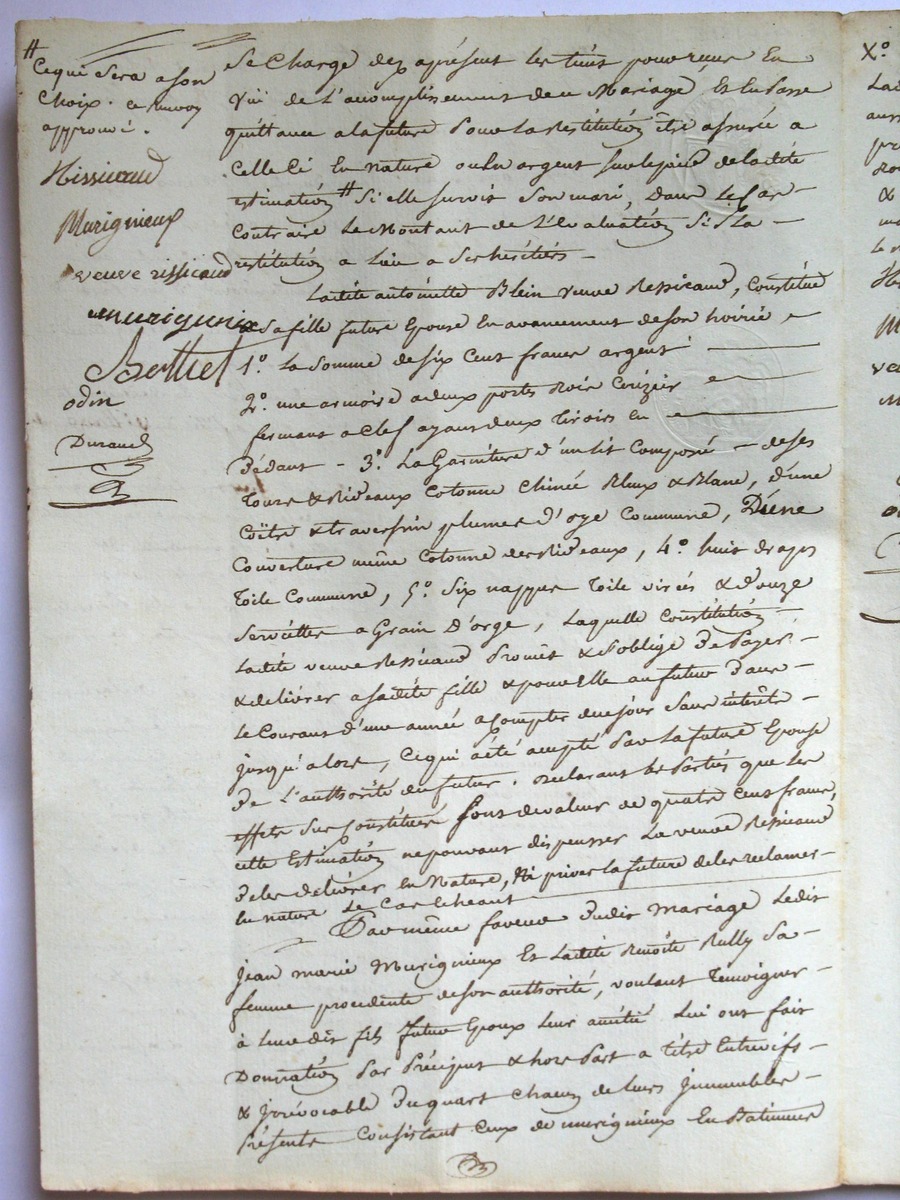 #
Ce qui sera a son
choix. ce renvoy
approuvé.
Rissicaud
Murignieux
veuve rissicaud
murignieux
Berthet
odin
Durand
Se charge dez aprésent les tenir pour reçus En
vüe de L'acomplissement du Mariage, Et En Passe
quittance a la future Pour La Restitution être assurée a
Celle Ci En nature ou En argent sur le pied de la dite
estimation # Si elle survit Son mari, Dans Le Cas
Contraire Le Montant de L'Evaluation Si La
restitution a Lieu a Ses héritiers.
Ladite antoinette Blein veuve Ressicaud, Constitué
a Sa fille future Epouse En avancement de son hoirie
1.° La Somme de Six Cent francs argent
2.° une armoire a deux portes Bois Cerizier
fermant a Clef ayant deux Tiroirs En
Dédans - 3.° La Garniture d'un Lit Composé de ses
Tours & Rideaux Cotonne Chinée Bleux & Blanc, d'une
Coëtre & traversin plumes d'oye Commune, D'une
Couverture même Cotonne des Rideaux, 4.° huit draps
Toile Commune, 5.° Six nappes Toile & Douze
Serviettes a Grain D'orge, Laquelle Constitution
Ladite veuve Ressicaud Promet & S'oblige De Payer
& délivrer a sadite fille & pour Elle au futur Dans
Le Courant d'une année a Compter du jour Sans intérêts
jusqu'alors, Ce qui a été accepté Par La future Epouse
De L'authorité du futur. Declarant les Parties que Les
effets Sus Constitués Sont de valeur de quatre Cents francs,
cette Estimation ne pouvant dispenser La veuve Ressicaud
De les délivrer En Nature, Ni priver la future de les réclamer
En nature Le Cas Echeant
Par même faveur Dudit Mariage Ledit
Jean marie Murignieux Et Ladite Benoîte Rully Sa
femme procedente de son authorité, voulant Temoigner
à Leur dit fils futur Epoux Leur amitié Lui ont fait
Donnation Par Préciput & hors Part a titre Entrevifs
& jrrévocable Du quart Chacun de Leurs jmmeubles
Présents Consistant Ceux de murignieux En Batimens
X.°